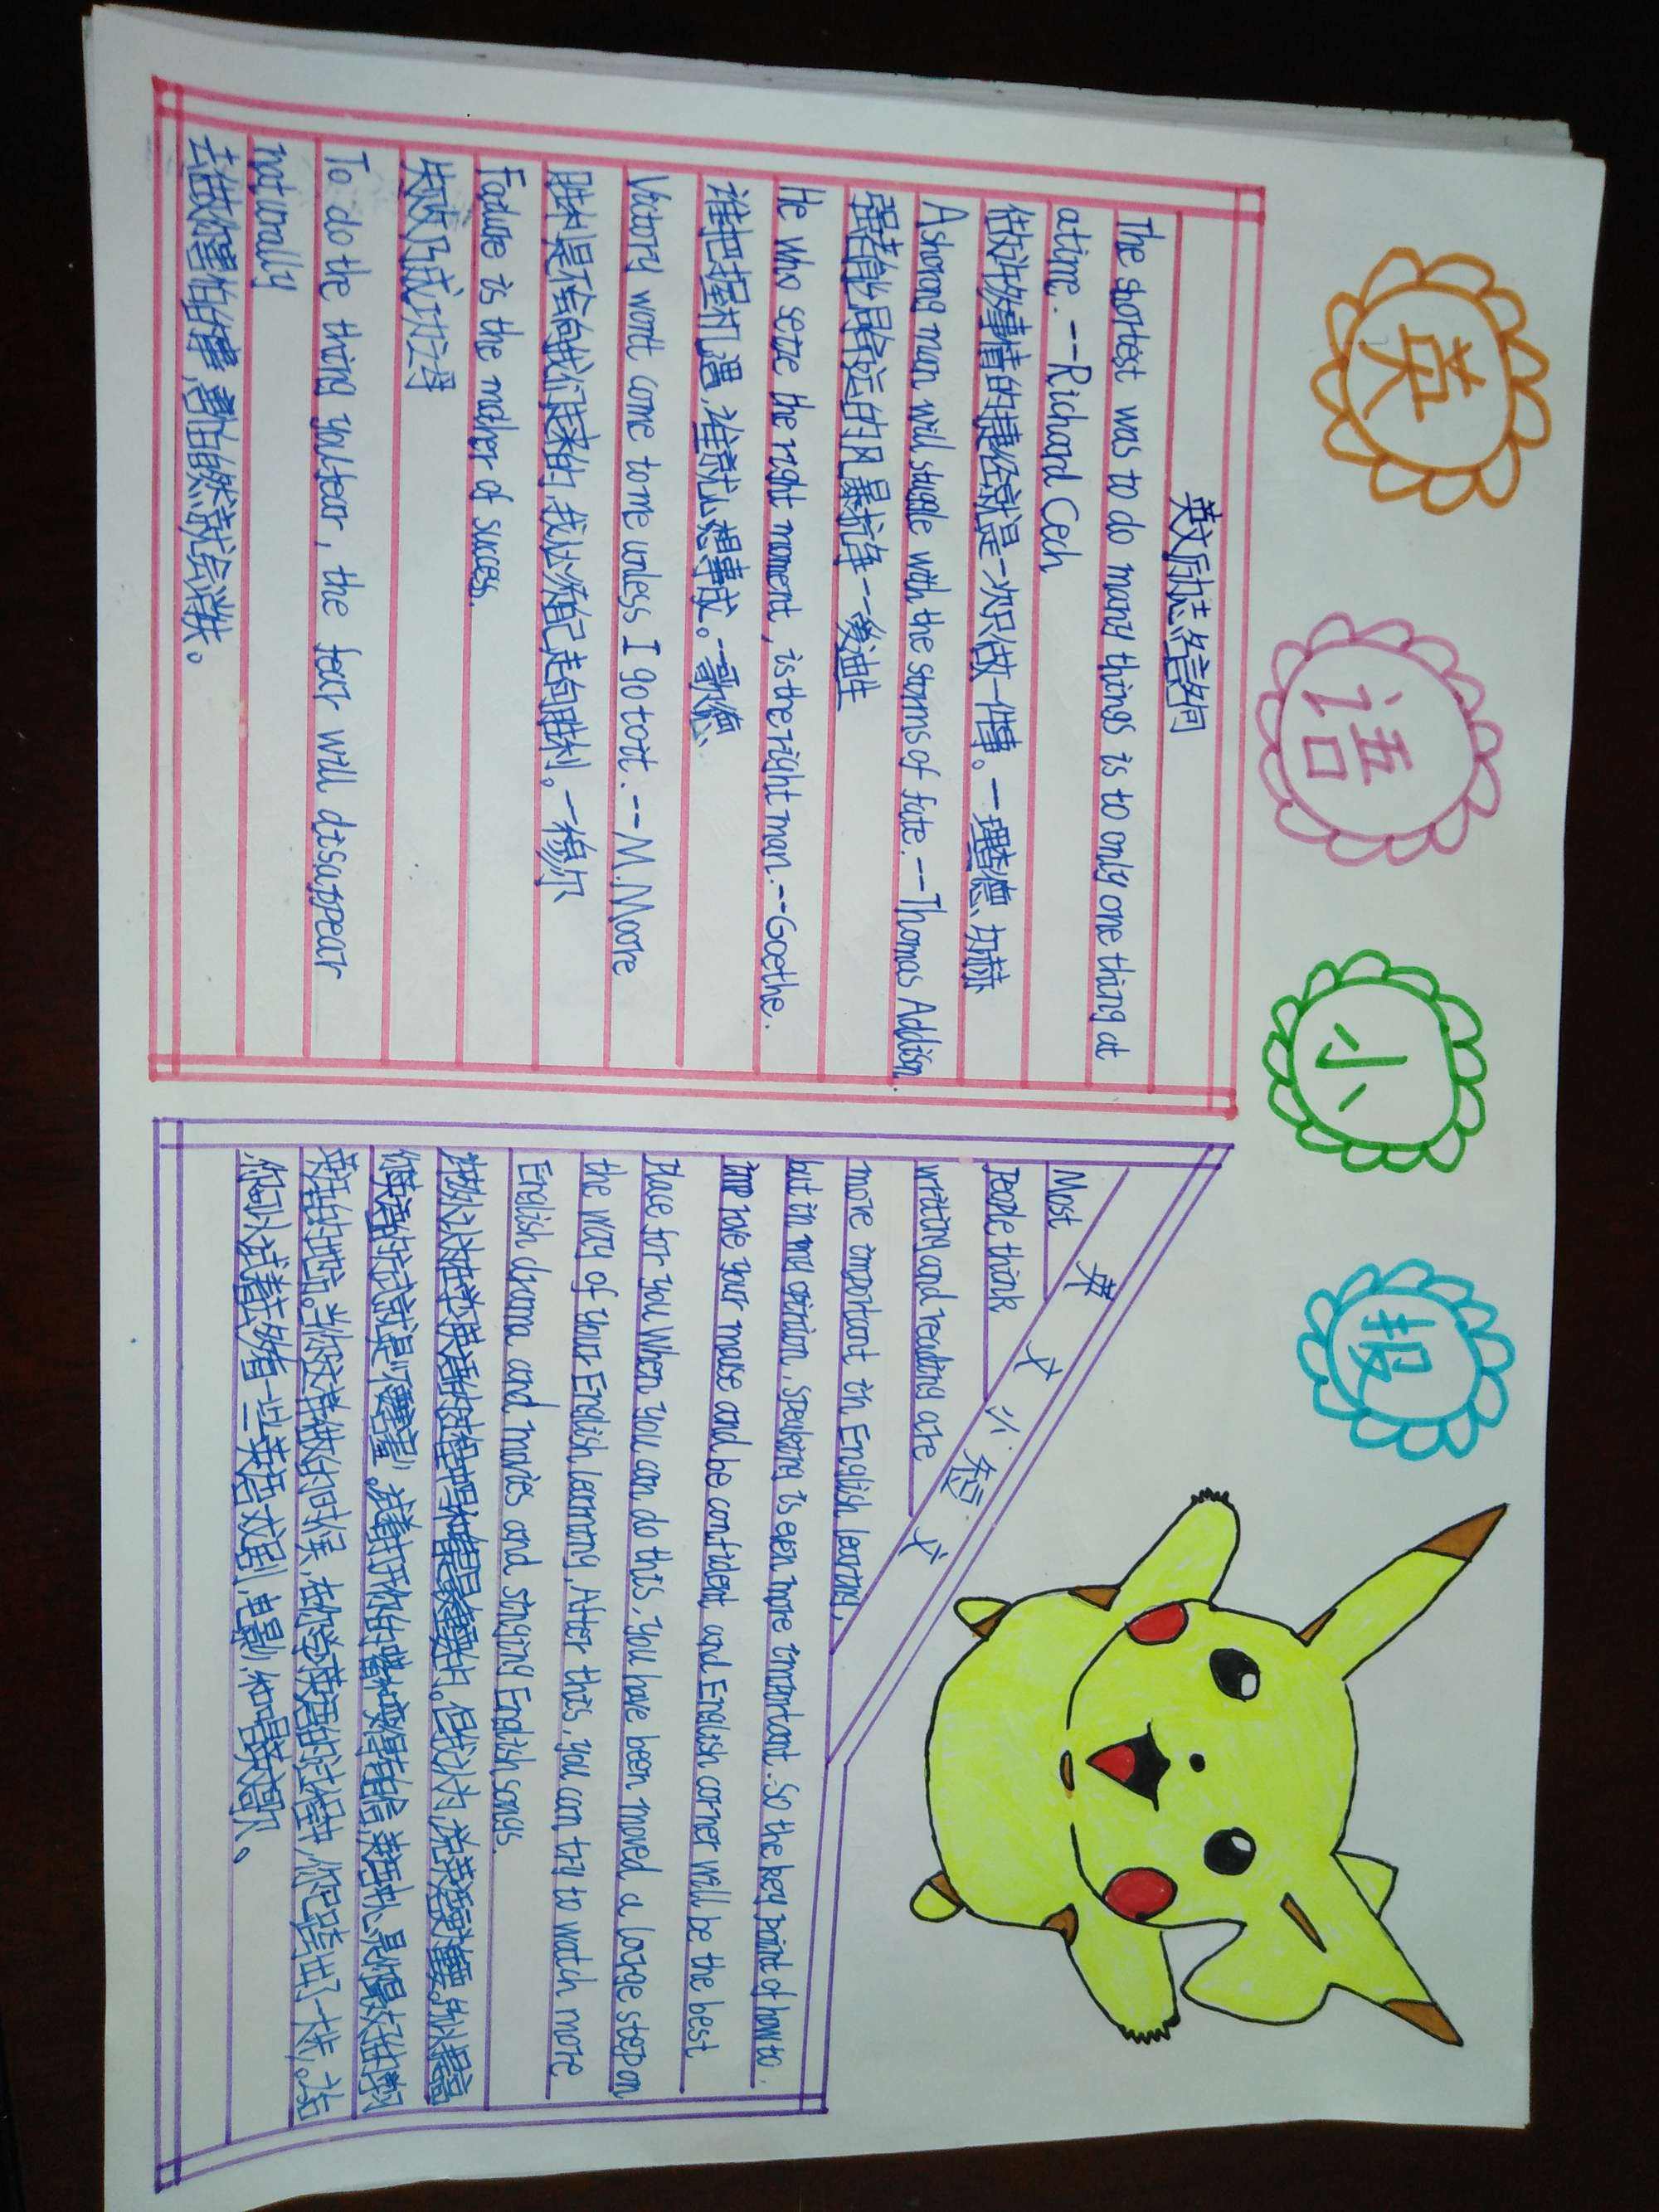 英语小报
英文励志名言名句
The shortest was to do many things is to only one thing at
atime. --Richard Cech
做许多事情的捷径就是一次只做一件事。一理查德、切赫
Ashong man will stuggle with the storms of fate.--Thomas Addison.
强者能同命运的风暴抗争一一爱迪生
He who seize the right moment, is the right man.--Goethe.
谁把握机遇,谁就心想事成。一歌德、
Victory wontt come to me unless I go to tt.--M.Moore
胜利是不会向我们走来的,我必须自己走向胜利。一穆尔
Fadure is the mother of success.
失败乃成功之母
To do the thing you fear, the fear will disappear
naturally
去做你害怕的事,害怕自然就会消失。
英文小短文
Most
people think
writting and reading are
more important in English learning,
but in my opinion, speaking is even more important. So the key point of how to
improve your mouse and be confident and English corner will be the best
place for you When you can do this, you have been moved a large step on
the way of your English learning, After this, you can try to watch more
English drama and movies and singing English songs.
英语的地方。当你这样做的时候,在你学英语的过程中,你已跨出了一大步,之后
你可以试着去多看一些英语戏剧,电影,和唱英文歌。